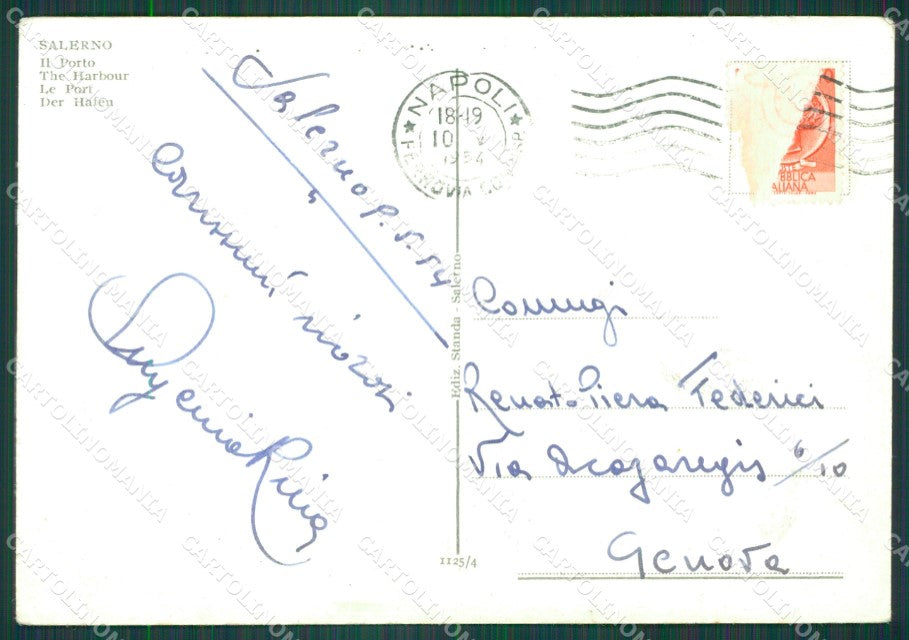 SALERNO
Il Porto
The Harbour
Le Port
Der Hafen
Salerno 9.5.54
Eugenia Rina
Ediz. Standa - Salerno
1125/4
NAPOLI
18-19
10 V
1954
FERROVIA
BBLICA
ALIANA
Coniugi
Renato Piera Federici
Via 6/10
Genova
CARTOLINOMANIA